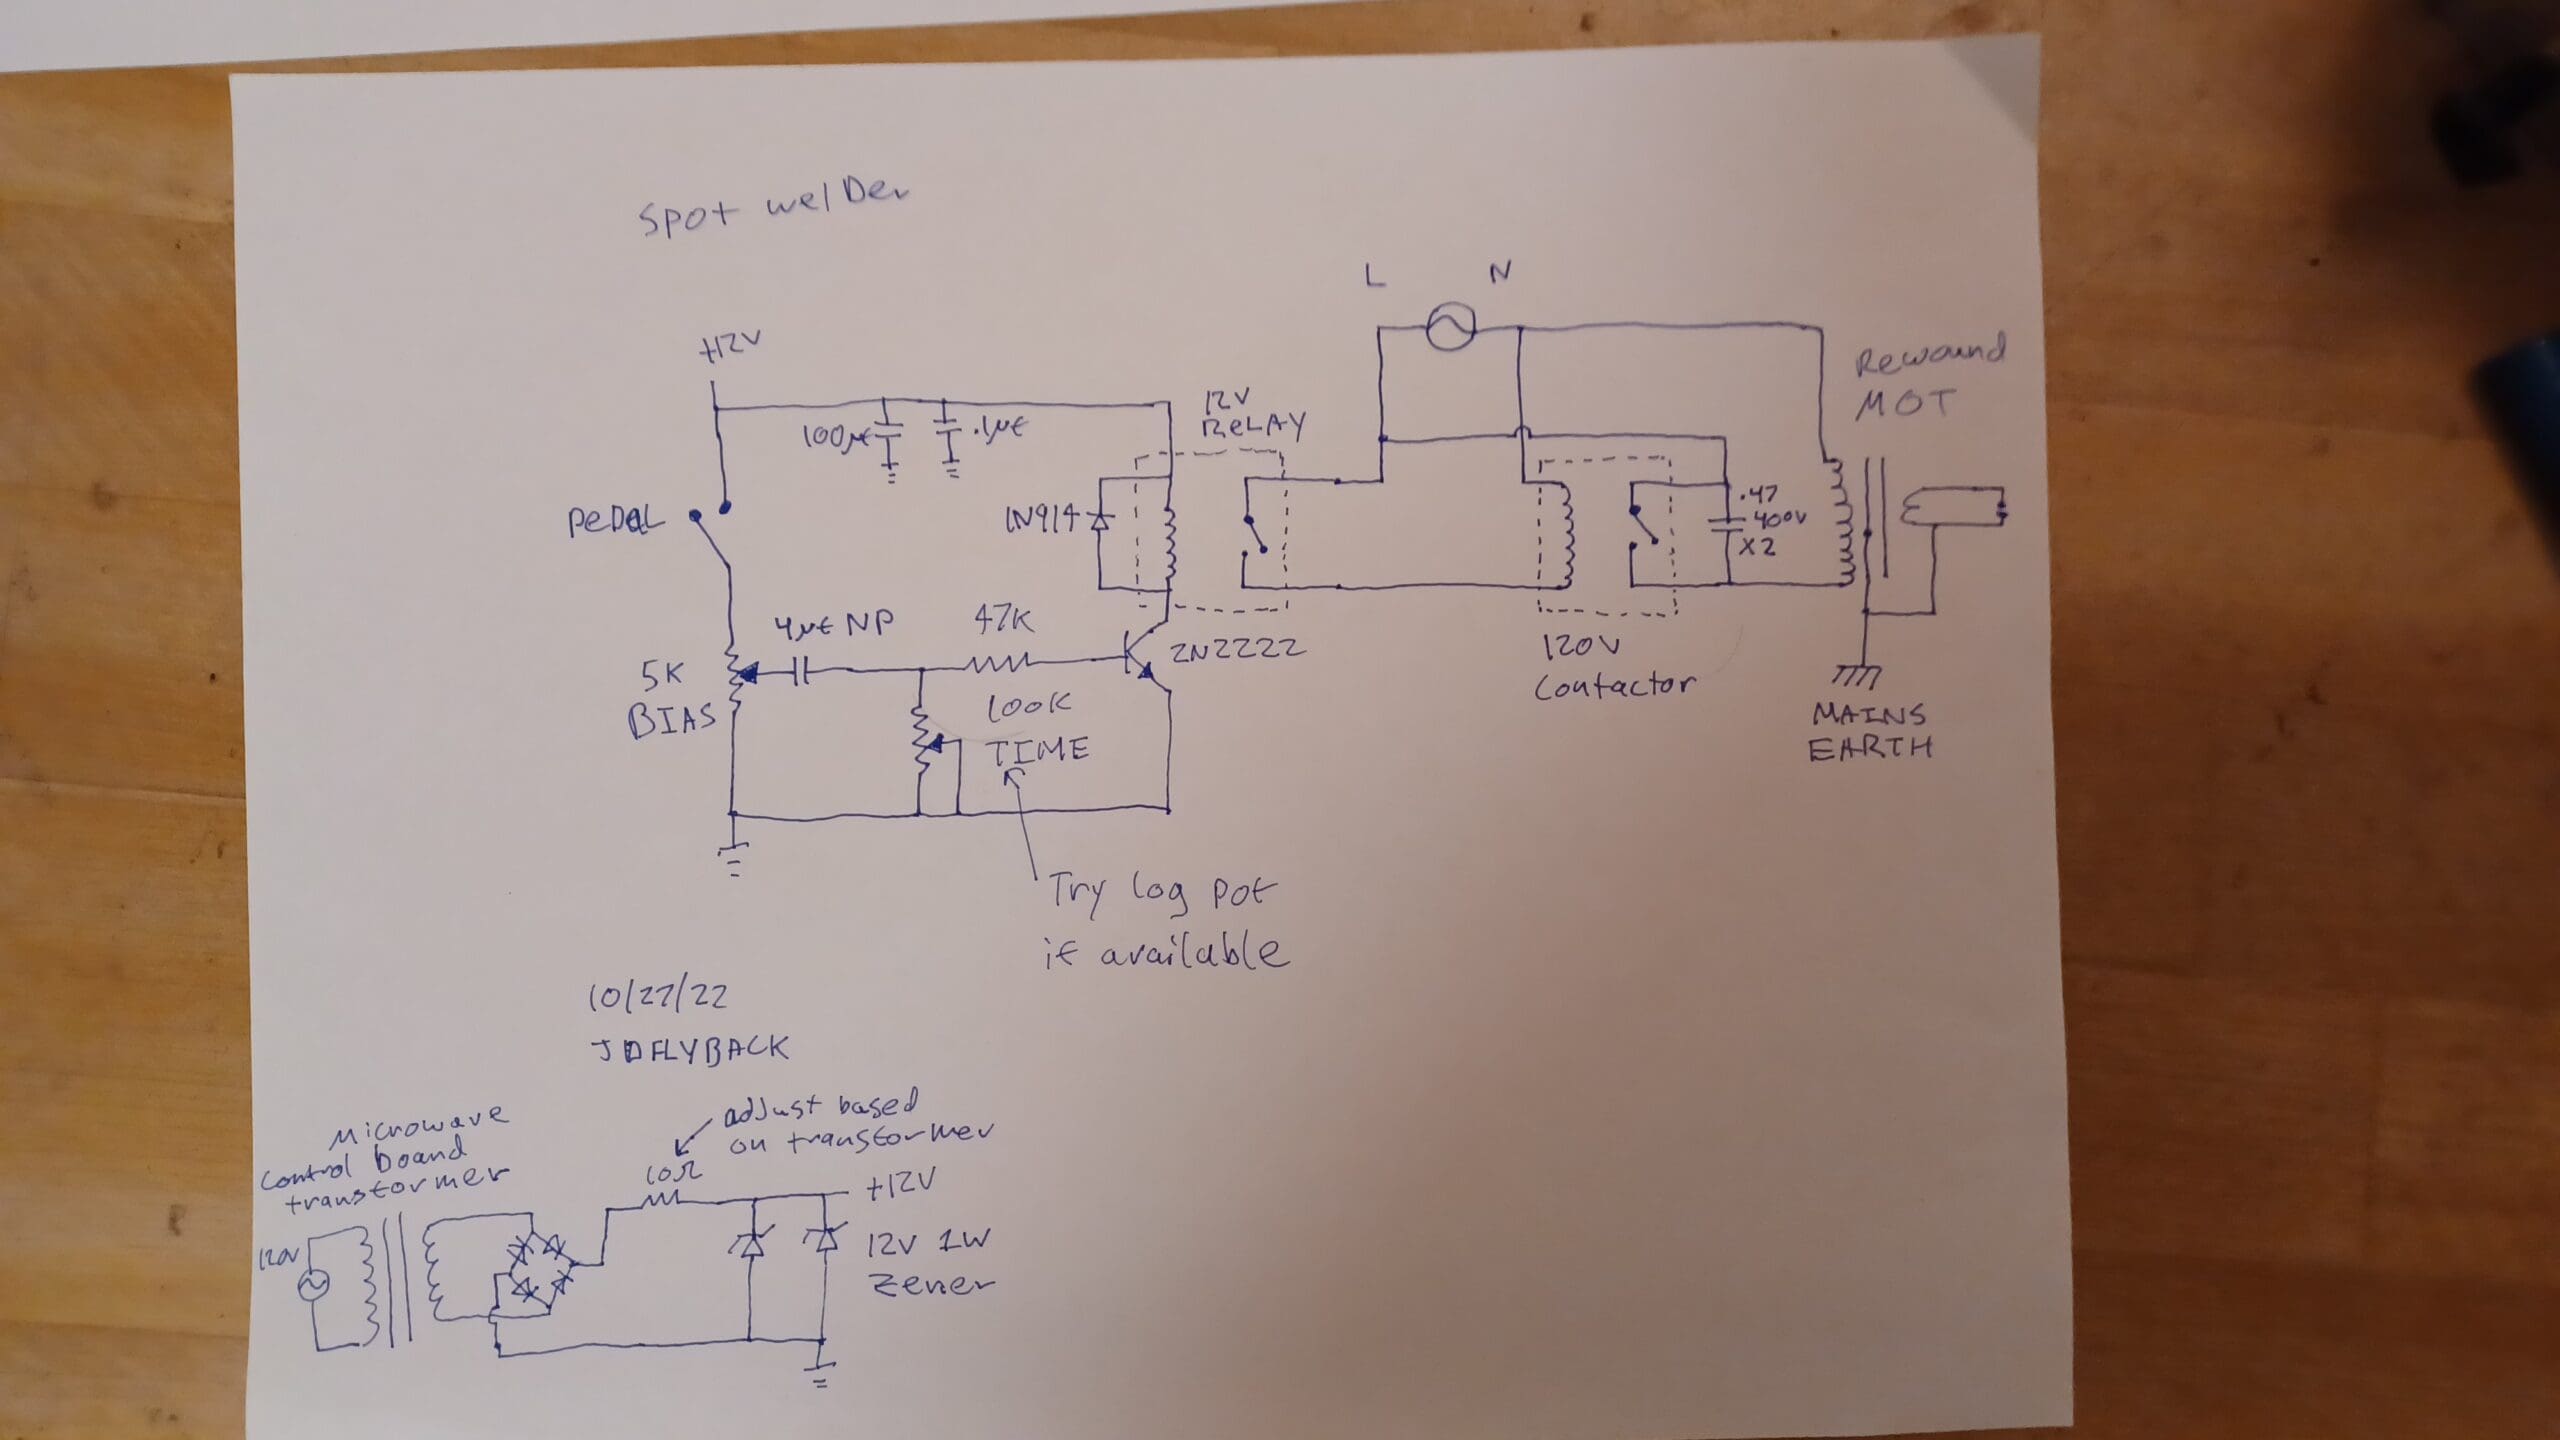 Spot welDer
L N
+12V
Rewound
MOT
12V
ReLAY
100µf
.1µf
PeDaL
1N914
.47
400V
X2
4µf NP
47K
2N2222
120V
Contactor
5K
BIAS
100K
TIME
MAINS
EARTH
Try log pot
if available
10/27/22
JDFLYBACK
Microwave
control board
transformer
adjust based
on transformer
10Ω
+12V
120V
12V 1W
Zener